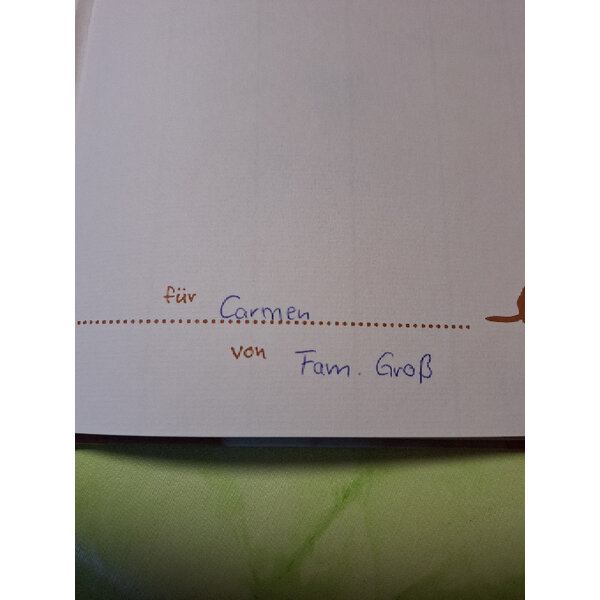 für Carmen
von Fam. Groß